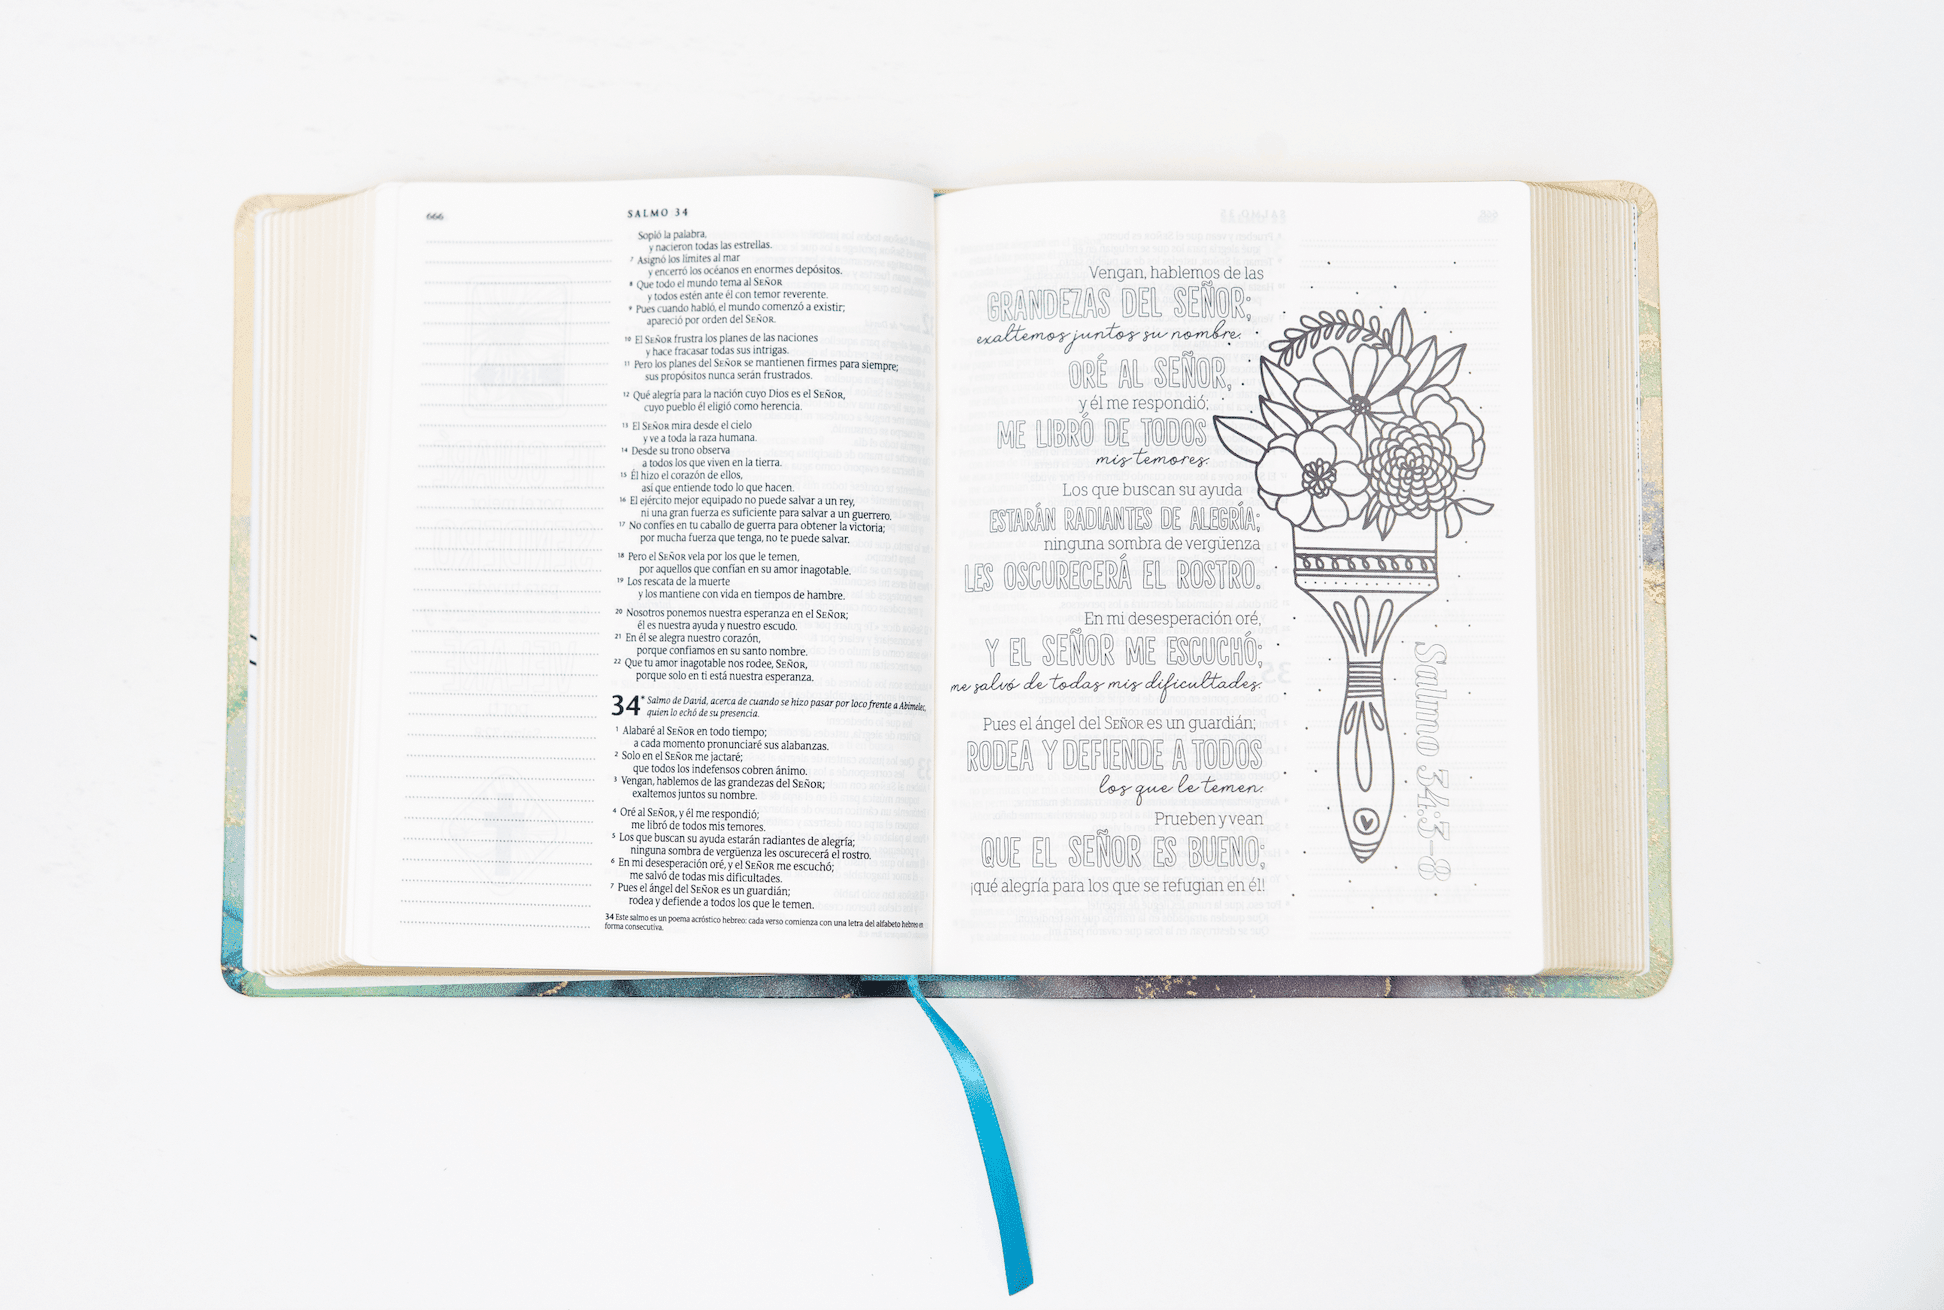 666
SALMO 34
Sopló la palabra,
y nacieron todas las estrellas.
7 Asignó los límites al mar
y encerró los océanos en enormes depósitos.
8 Que todo el mundo tema al SEÑOR
y todos estén ante él con temor reverente.
9 Pues cuando habló, el mundo comenzó a existir;
apareció por orden del SEÑOR.
10 El SEÑOR frustra los planes de las naciones
y hace fracasar todas sus intrigas.
11 Pero los planes del SEÑOR se mantienen firmes para siempre;
sus propósitos nunca serán frustrados.
12 Qué alegría para la nación cuyo Dios es el SEÑOR,
cuyo pueblo él eligió como herencia.
13 El SEÑOR mira desde el cielo
y ve a toda la raza humana.
14 Desde su trono observa
a todos los que viven en la tierra.
15 Él hizo el corazón de ellos,
así que entiende todo lo que hacen.
16 El ejército mejor equipado no puede salvar a un rey,
ni una gran fuerza es suficiente para salvar a un guerrero.
17 No confíes en tu caballo de guerra para obtener la victoria;
por mucha fuerza que tenga, no te puede salvar.
18 Pero el SEÑOR vela por los que le temen,
por aquellos que confían en su amor inagotable.
19 Los rescata de la muerte
y los mantiene con vida en tiempos de hambre.
20 Nosotros ponemos nuestra esperanza en el SEÑOR;
él es nuestra ayuda y nuestro escudo.
21 En él se alegra nuestro corazón,
porque confiamos en su santo nombre.
22 Que tu amor inagotable nos rodee, SEÑOR,
porque solo en ti está nuestra esperanza.
34* Salmo de David, acerca de cuando se hizo pasar por loco frente a Abimelec,
quien lo echó de su presencia.
1 Alabaré al SEÑOR en todo tiempo;
a cada momento pronunciaré sus alabanzas.
2 Solo en el SEÑOR me jactaré;
que todos los indefensos cobren ánimo.
3 Vengan, hablemos de las grandezas del SEÑOR;
exaltemos juntos su nombre.
4 Oré al SEÑOR, y él me respondió;
me libró de todos mis temores.
5 Los que buscan su ayuda estarán radiantes de alegría;
ninguna sombra de vergüenza les oscurecerá el rostro.
6 En mi desesperación oré, y el SEÑOR me escuchó;
me salvó de todas mis dificultades.
7 Pues el ángel del SEÑOR es un guardián;
rodea y defiende a todos los que le temen.
34 Este salmo es un poema acróstico hebreo: cada verso comienza con una letra del alfabeto hebreo en
forma consecutiva.
Vengan, hablemos de las
GRANDEZAS DEL SEÑOR;
exaltemos juntos su nombre.
ORÉ AL SEÑOR,
y él me respondió;
ME LIBRÓ DE TODOS
mis temores.
Los que buscan su ayuda
ESTARÁN RADIANTES DE ALEGRÍA;
ninguna sombra de vergüenza
LES OSCURECERÁ EL ROSTRO.
En mi desesperación oré,
Y EL SEÑOR ME ESCUCHÓ;
me salvó de todas mis dificultades.
Pues el ángel del SEÑOR es un guardián;
RODEA Y DEFIENDE A TODOS
los que le temen.
Prueben y vean
QUE EL SEÑOR ES BUENO;
¡qué alegría para los que se refugian en él!
Salmo 34:3-8